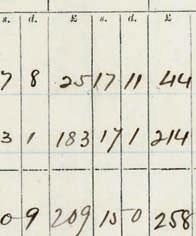 s. d. £ s. d. £
7 8 25 17 11 44
3 1 183 17 1 214
0 9 209 15 0 258